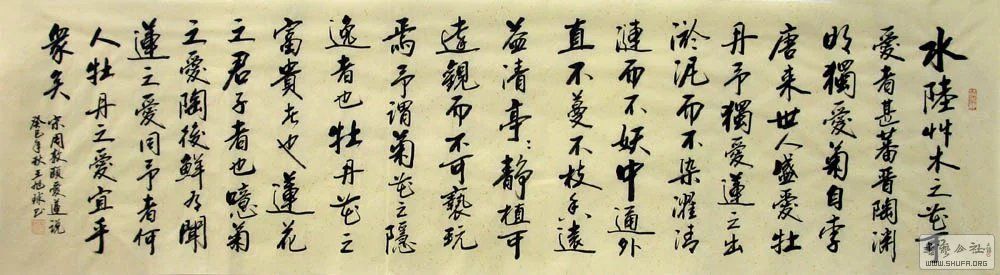 水陸艸木之花可
愛者甚蕃晉陶渊
明獨愛菊自李
唐来世人盛愛牡
丹予獨愛蓮之出
淤泥而不染濯清
漣而不妖中通外
直不蔓不枝香遠
益清亭:静植可
遠觀而不可褻玩
焉予謂菊花之隱
逸者也牡丹花之
富貴者也蓮花
之君子者也噫菊
之愛陶後鮮有聞
蓮之愛同予者何
人牡丹之愛宜乎
衆矣
宋周敦頤愛蓮説
癸巳年秋王旭球书
公社
WWW.SHUFA.ORG